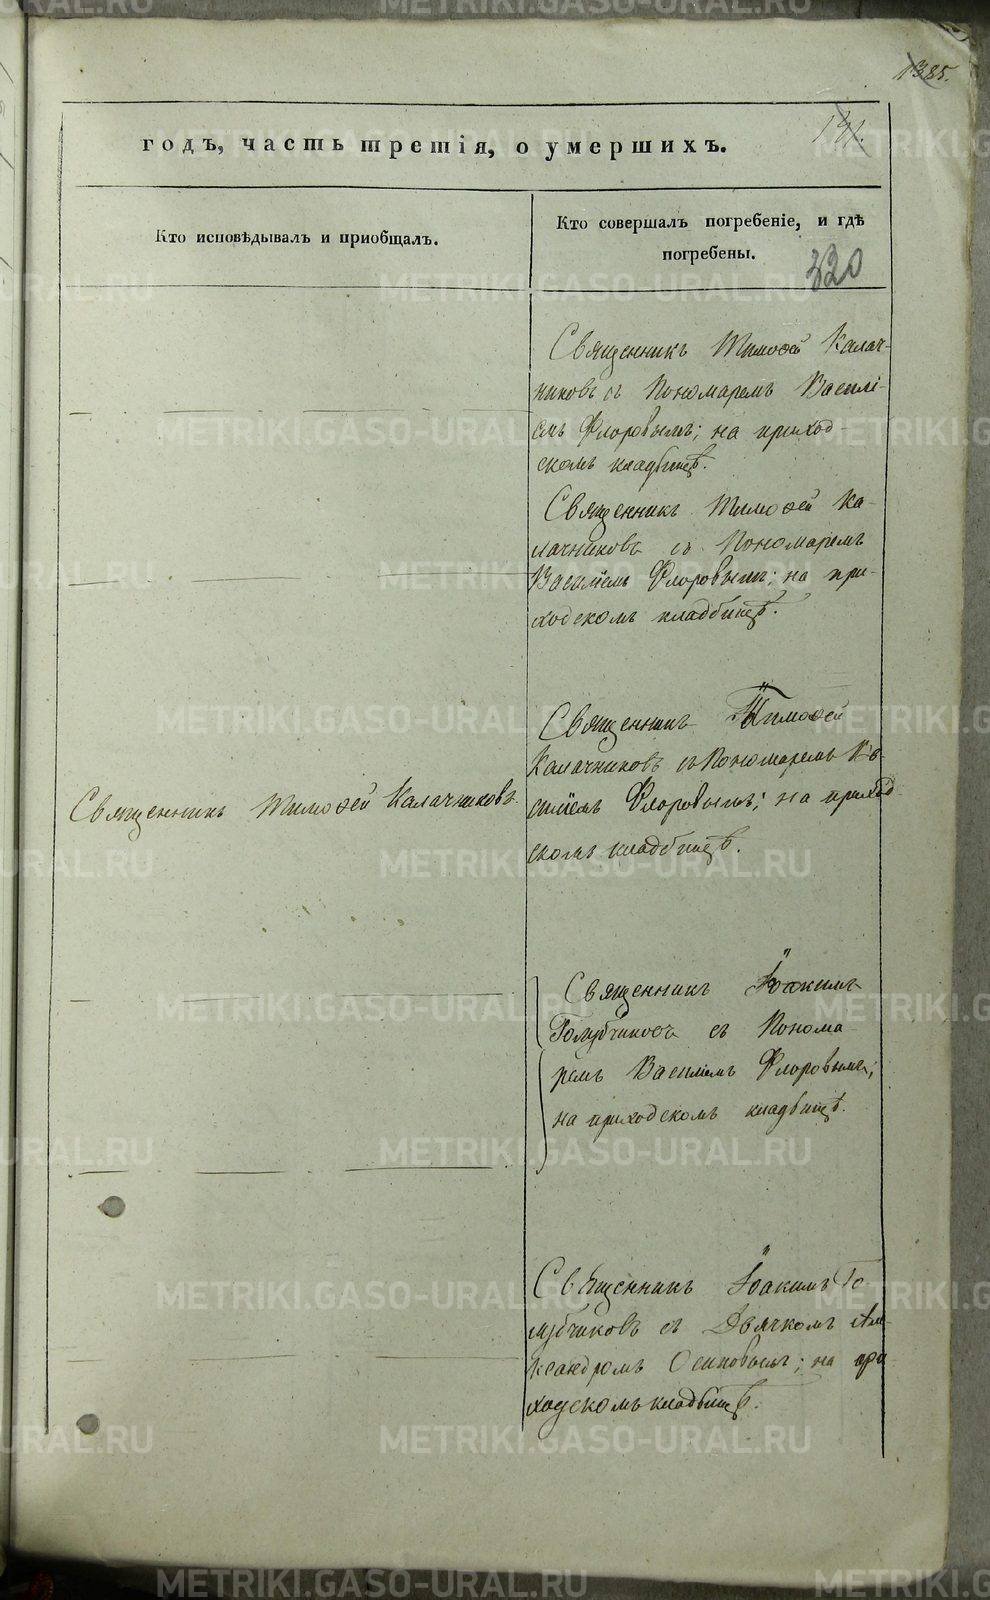 1385.
191.
годъ, часть третія, о умершихъ.
Кто исповѣдывалъ и приобщалъ.
Кто совершалъ погребеніе, и гдѣ
погребены.
320
Священникъ Тимоѳей Калач-
никовъ съ Пономаремъ Василі-
емъ Флоровымъ; на приход-
скомъ кладбищѣ.
Священникъ Тимоѳей Ка-
лачниковъ съ Пономаремъ
Василіемъ Флоровымъ; на при-
ходскомъ кладбищѣ.
Священникъ Тимоѳей Калачниковъ
Священникъ Тимоѳей
Калачниковъ съ Пономаремъ Ва-
силіемъ Флоровымъ; на приход-
скомъ кладбищѣ.
Священникъ Іоакимъ
Голубчиковъ съ Понома
ремъ Василіемъ Флоровымъ;
на приходскомъ кладбищѣ.
Священникъ Іоакимъ Го-
лубчиковъ съ Дьячкомъ Але-
ксандромъ Осиповымъ; на при
ходскомъ кладбищѣ.
METRIKI.GASO-URAL.RU